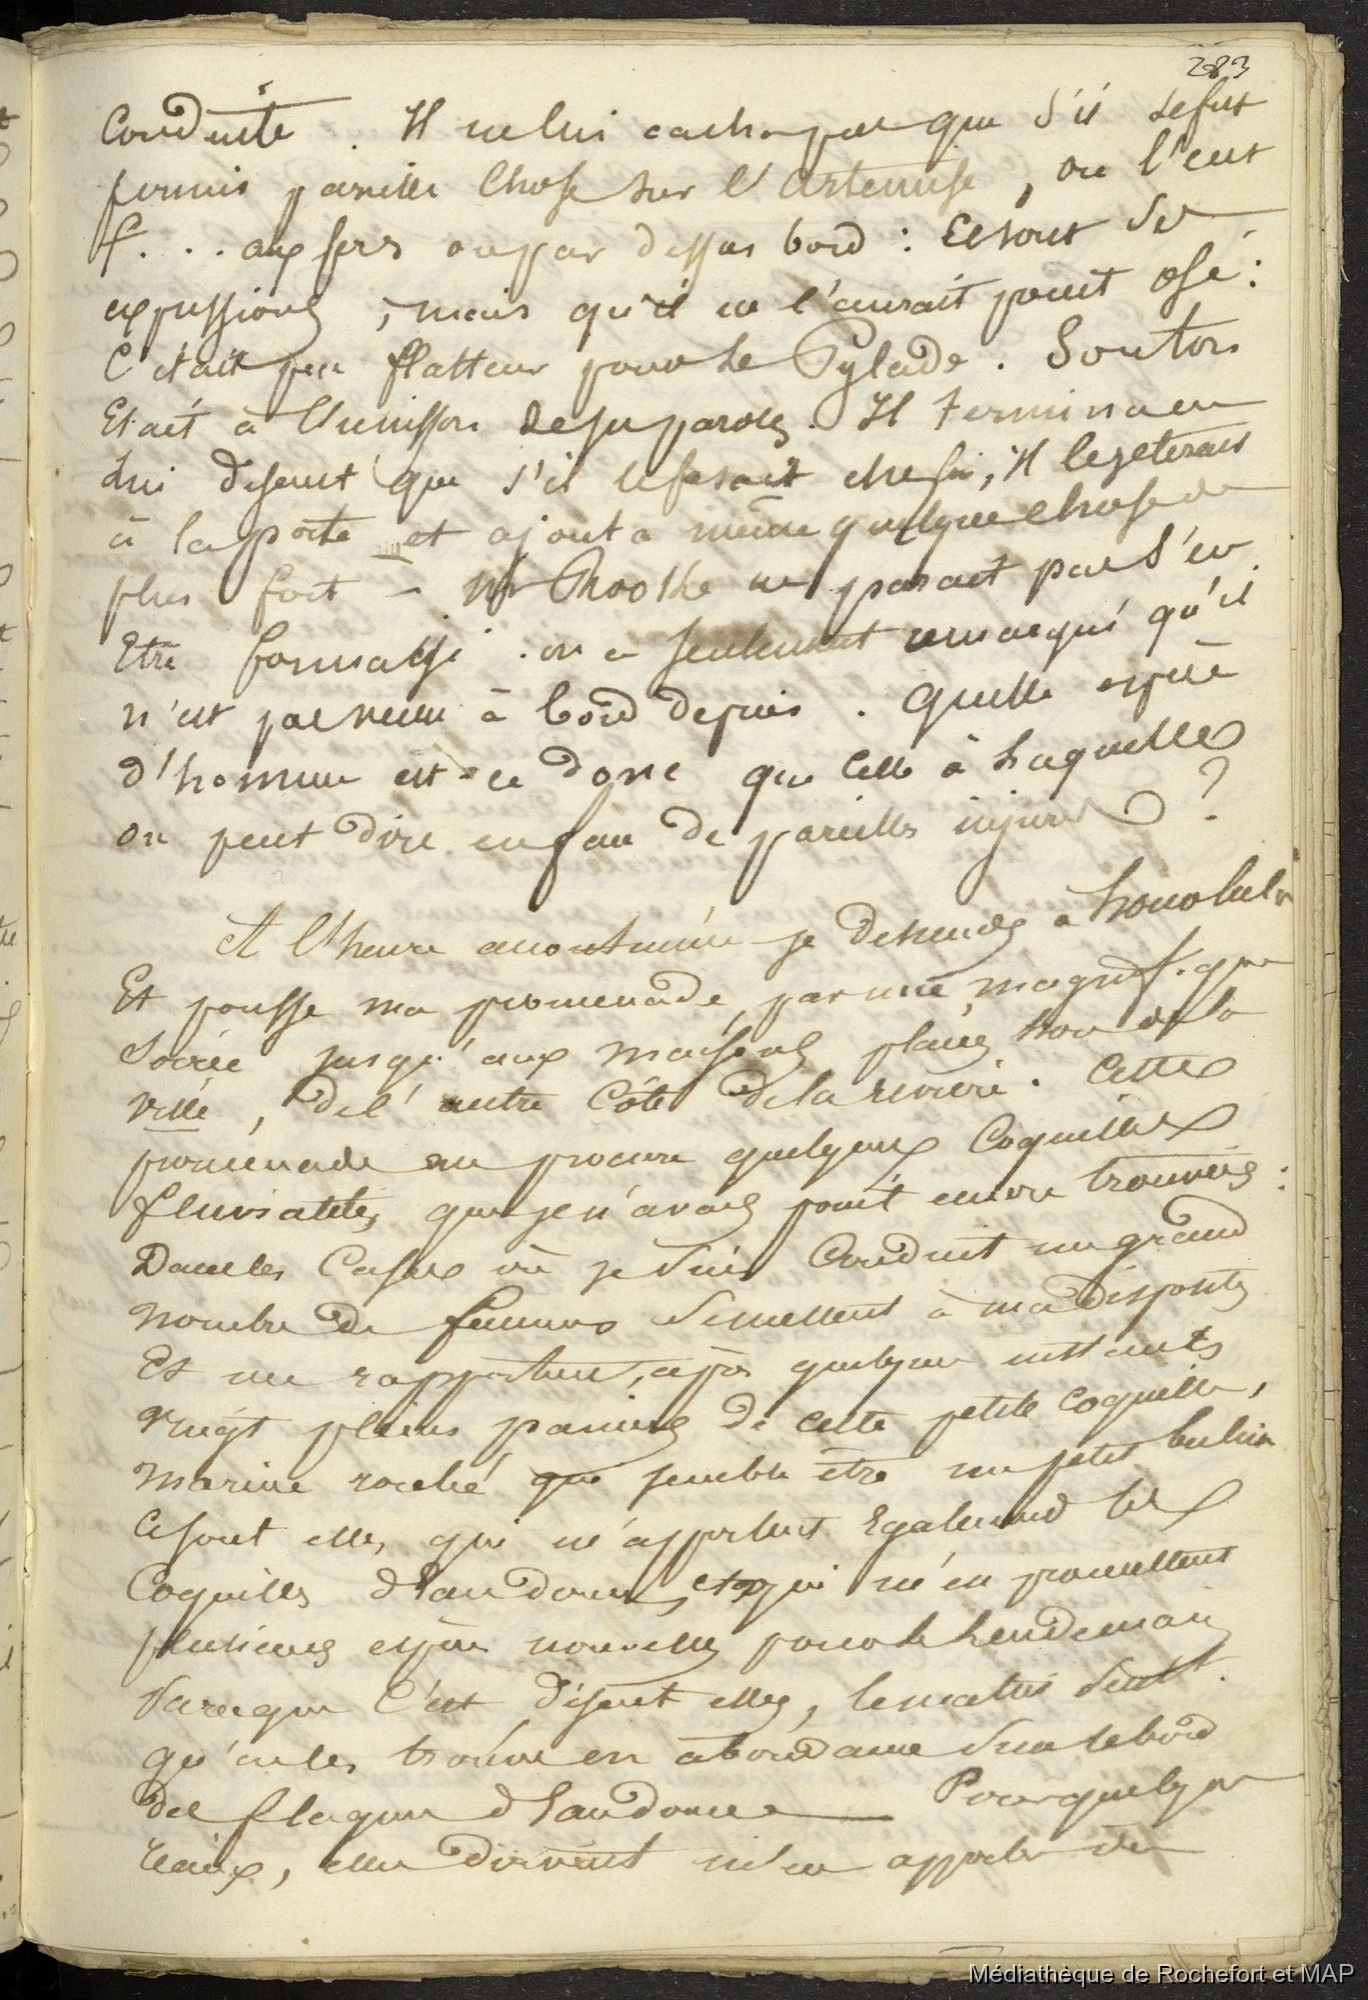 283
Conduite. Il ne lui cacha pas que s'il se fut
permis pareille chose sur l'Artémise, on l'eut
f... aux fers ou par dessus bord : Ce sont ses
expressions, mais qu'il ne l'aurait point osé :
C'était peu flatteur pour le Pylade. Son ton
Etait à l'unisson de ses paroles. Il termina en
Lui disant que s'il le fesait chez soi, il le jeterait
à la porte et ajouta même quelque chose de
plus fort – Mr Rhooke ne parait pas s'en
Etre formalisé. on a seulement remarqué qu'il
n'est pas venu à bord depuis. Quelle espèce
d'homme est-ce donc que celle à laquelle
on peut dire en face de pareilles injures ?
A l'heure accoutumée je descends à honolulu
Et pousse ma promenade, par une magnifique
Soirée jusqu'aux maisons placées hors de la
ville, de l'autre côté de la rivière. Cette
promenade me procure quelques Coquilles
fluviatiles que je n'avais point encore trouvées :
Dans les Cases où je suis Conduit un grand
nombre de femmes se mettent à ma disposit.
Et me rapportent, après quelques instants
vingt pleins paniers de cette petite coquille,
marine que semble être un petit bulin
Ce sont elles qui m'apportent Egalement les
Coquilles d'Eau douce, et qui m'en promettent
plusieurs espèces nouvelles pour le lendemain
Parceque C'est disent elles, le matin seult.
qu'on les trouve en abondance sur le bord
des flaques d'Eau douce — Pour quelques
réaux, elles doivent m'en apporter de
Médiathèque de Rochefort et MAP